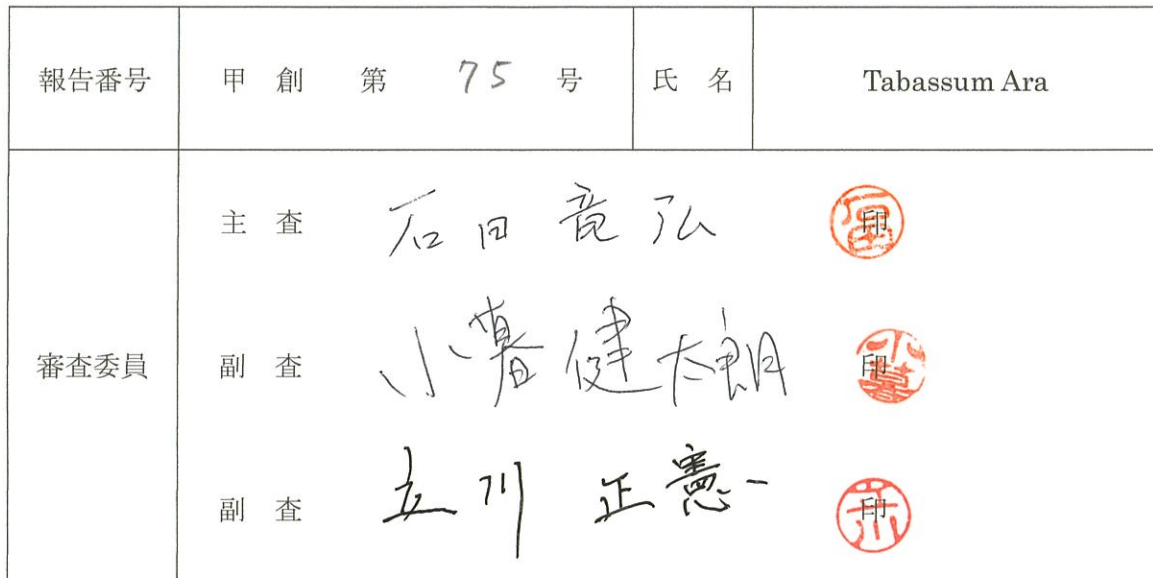 報告番号 甲 創 第 75 号 氏 名 Tabassum Ara
主 査 石田 竜弘 印
審査委員 副 査 小暮 健太朗 印
副 査 立川 正憲 印